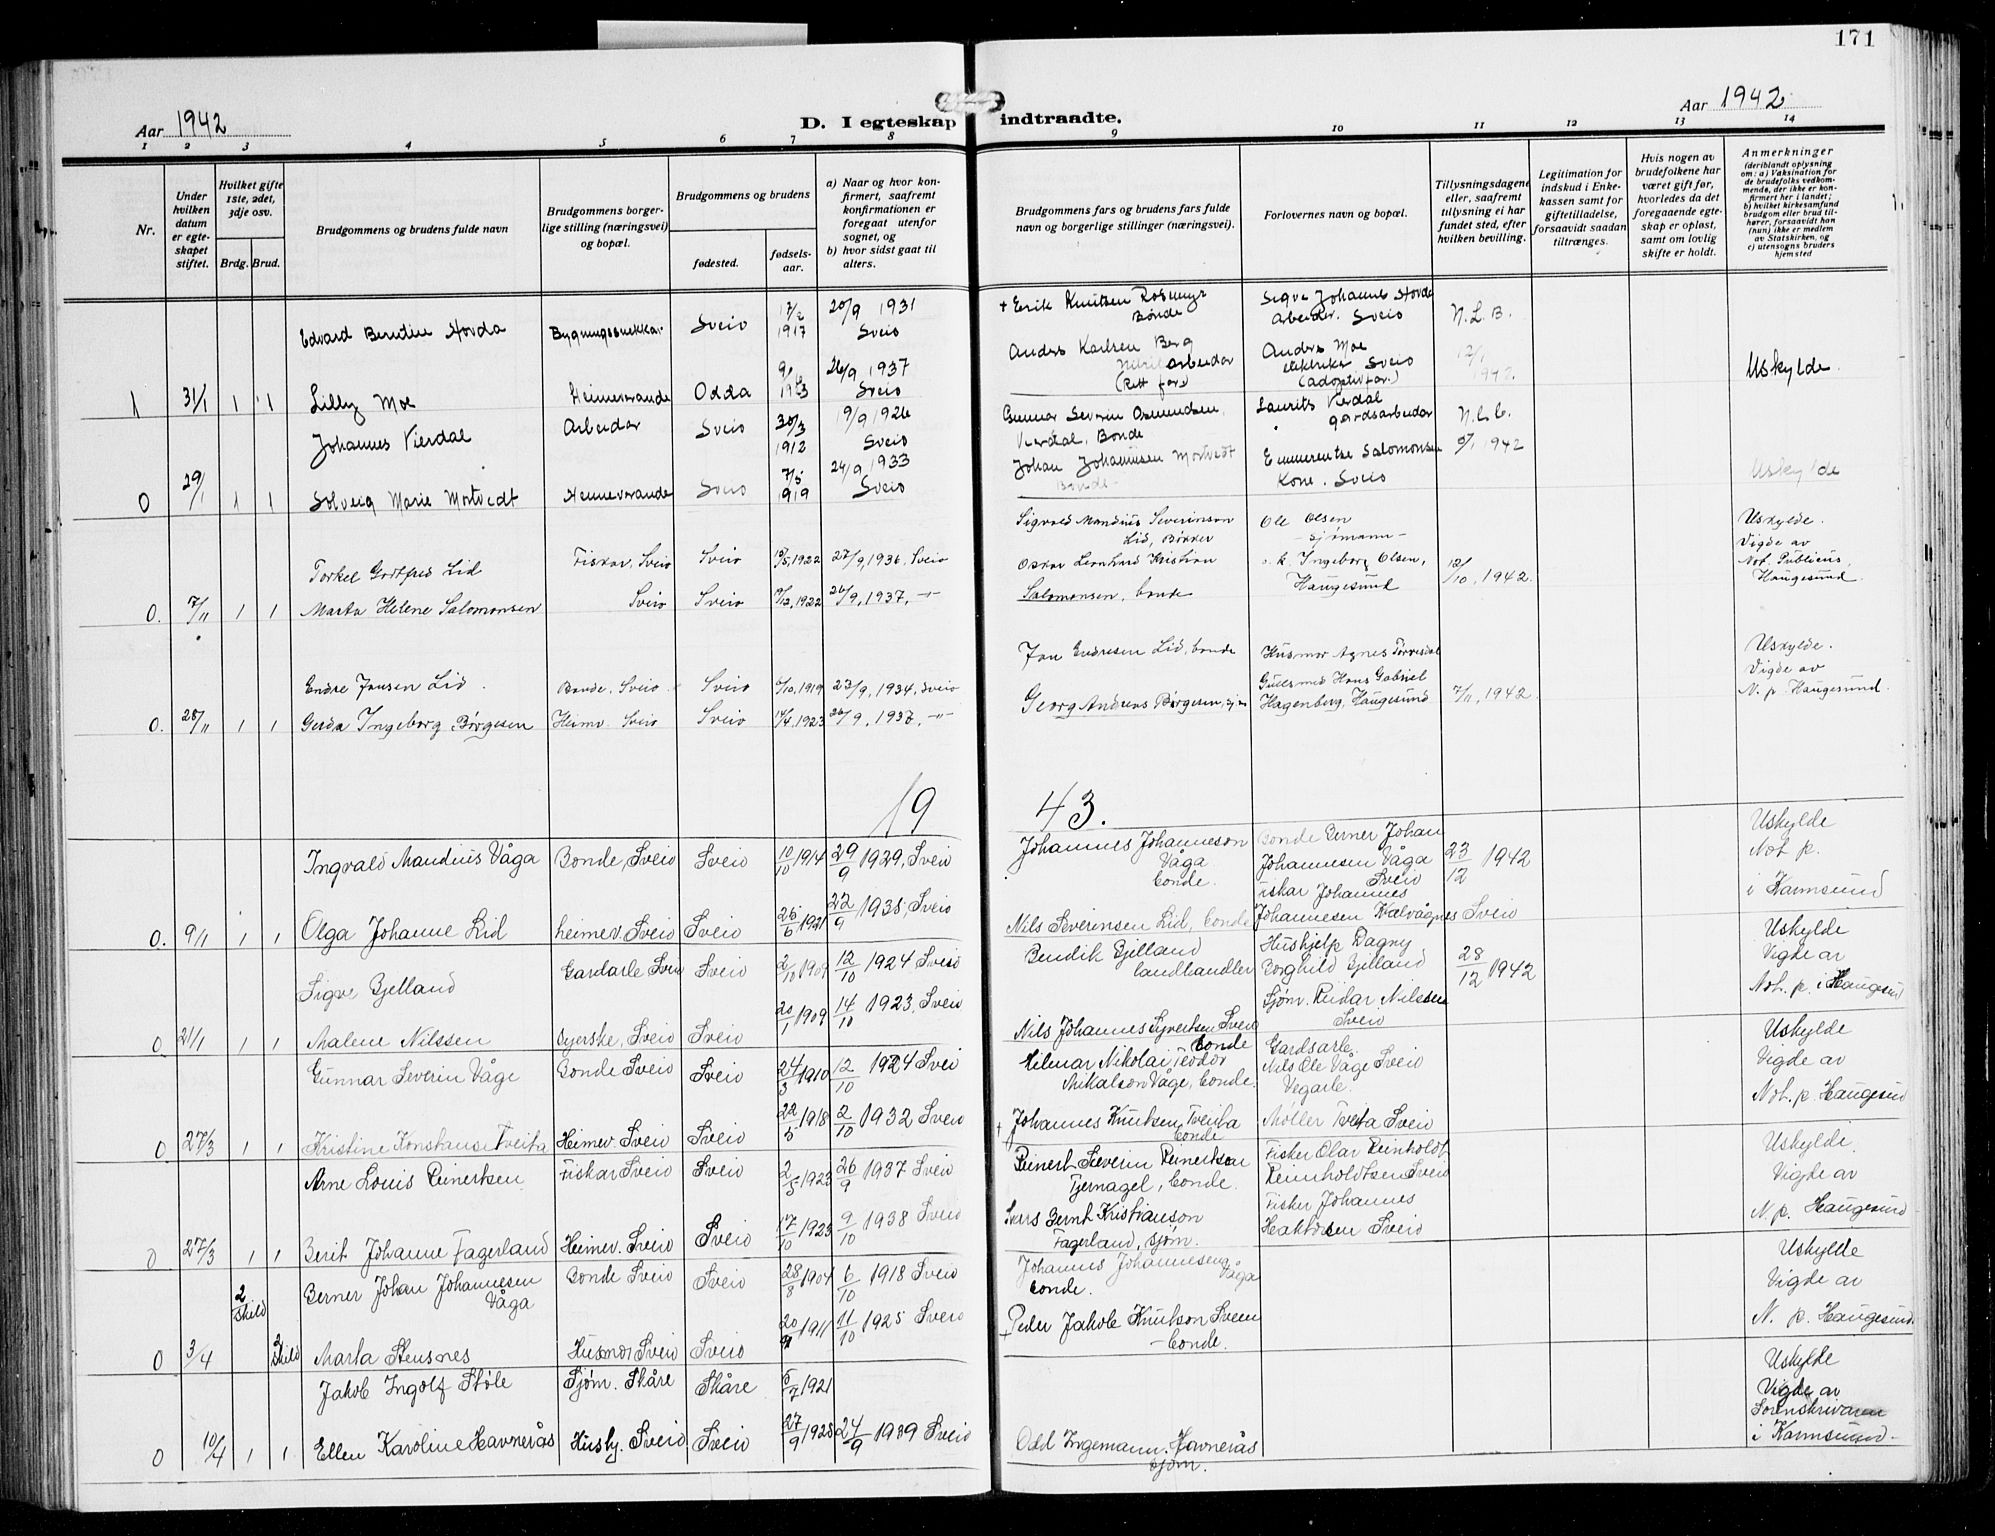 171
Aar 1942
D. I egteskap indtraadte.
Aar 1942
1 2 3 4 5 6 7 8 9 10 11 12 13 14
Nr.
Under hvilken datum er egteskapet stiftet.
Hvilket gifte 1ste, 2det, 3dje osv.
Brdg. Brud.
Brudgommens og brudens fulde navn
Brudgommens borgerlige stilling (næringsvei) og bopæl.
Brudgommens og brudens
fødested.
fødselsaar.
a) Naar og hvor konfirmert, saafremt konfirmationen er foregaat utenfor sognet, og
b) hvor sidst gaat til alters.
Brudgommens fars og brudens fars fulde navn og borgerlige stillinger (næringsvei).
Forlovernes navn og bopæl.
Tillysningsdagene eller, saafremt tillysning ei har fundet sted, efter hvilken bevilling.
Legitimation for indskud i Enkekassen samt for giftetilladelse, forsaavidt saadan tiltrænges.
Hvis nogen av brudefolkene har været gift før, hvorledes da det foregaaende egteskap er opløst, samt om lovlig skifte er holdt.
Anmerkninger
(deriblandt oplysning om: a) Vaksination for de brudefolks vedkommende, der ikke er konfirmert her i landet; b) hvilket kirkesamfund brudgom eller brud tilhører, forsaavidt han (hun) ikke er medlem av Statskirken, og c) utensogns bruders hjemsted
Edvard Berntin Hovda Bygningssnekkar Sveio 17/2 1917 20/9 1931 Sveio + Erik Knutsen Rosmyr Bonde Sigve Johannes Hovda Arbeider. Sveio N.L.B.
1 31/1 1 1 Lilly Moe Heimeverande Odda 1923 26/9 1937 Sveio Anders Karlsen Berg arbeidar (Rett far) Anders Moe elektriker Sveio (adoptivfar.) 12/1 1942. Uskylde.
Johannes Vierdal Arbeidar Sveio 30/3 1912 19/9 1926 Sveio Gunnar Severin Osmundsen Vierdal, Bonde Laurits Vierdal gardsarbeidar N.L.B.
0 29/1 1 1 Solveig Marie Mortvedt Heimeverande Sveio 7/5 1919 24/9 1933 Sveio Johan Johannesen Mortvedt Bonde Emmerentse Salomonsen Kone. Sveio 1942 Uskylde
Torkel Gotfred Lid Fiskar, Sveio Sveio 1922 27/9, 1936, Sveio Sigvald Mandius Severinson Lid, Bøkker Ole Olsen - sjømann - Uskylde. Vigde av Not. Publicus, Haugesund.
0. 7/11 1 1 Marta Helene Salomonsen Sveio Sveio 1922 26/9, 1937, -"- Oskar Leonhard Kristian Salomonsen, bonde Ingeborg Olsen, Haugesund 12/10, 1942.
Endre Jansen Lid. Bonde, Sveio Sveio 1919 23/9, 1934, Sveio Jan Endresen Lid, bonde Husmor Agnes Torvesdal Uskylde. Vigde av N. p. Haugesund.
0. 28/11 1 1 Gerda Ingeborg Børgesen Heimv. Sveio Sveio 14/4, 1923 26/9, 1937, -"- Georg Andreas Børgesen, Gullsmed Hans Gabriel Hagenberg, Haugesund 7/11, 1942.
19 43.
Ingvald Mandius Våga Bonde, Sveio Sveio 10/10 1914 29/9 1929, Sveio Johannes Johanneson Våga bonde. Bonde Berner Johan Johannesen Våga Sveio 23/12 1942 Uskylde Not p. i Karmsund
0. 9/1 1 1 Olga Johanne Lid heimev. Sveio Sveio 26/6 1921 22/9 1935, Sveio Nils Severinsen Lid, bonde Fiskar Johannes Johannesen Kalvågnes Sveio
Sigve Gjelland Gardarb. Sveio Sveio 2/10 1909 12/10 1924, Sveio Bendik Gjelland landhandler Hushjelp Dagny Borghild Gjelland 28/12 1942 Uskylde Vigde av Not. p. i Haugesund
0 21/1 1 1 Malene Nilssen syerske, Sveio Sveio 20/1 1909 14/10 1923, Sveio Nils Johannes Syvertsen Sveio bonde Sjøm. Reidar Nilssen Sveio
Gunnar Severin Våge Bonde Sveio Sveio 24/3 1910 12/10 1924 Sveio Helmar Nikolai Teodor Mikalson Våge, bonde. Gardsarb. Nils Ole Våge Sveio Vegarb. Uskylde Vigde av Not. p. Haugesund
0. 27/3 1 1 Kristine Konstanse Tveita Heimev. Sveio Sveio 22/5 1918 2/10 1932 Sveio + Johannes Knutsen Tveita bonde Møller Tveita Sveio
Arne Louis Reinertsen Fiskar Sveio Sveio 2/5 1923 26/9 1937 Sveio Reinert Severin Reinertsen Tjernagel, bonde. Fisker Olav Reinholdt Reinholdtsen Sveio Uskylde. Vigde av N. p. Haugesund
0 27/3 1 1 Berit Johanne Fagerland Heimev. Sveio Sveio 17/10 1923 9/10 1938 Sveio Bernt Kristianson Fagerland, sjøm. Fisker Johannes Sveio
2 skild Berner Johan Johannesen Våga Bonde Sveio Sveio 28/8 1904 6/10 1918 Sveio Johannes Johannesen Våga bonde. Uskylde Vigde av N. p. Haugesund
0 3/4 2 skild Marta Stensnes Husmor Sveio Sveio 1911 11/10 1925 Sveio Peder Jakob Knutson Sveen - bonde.
Jakob Ingolf Støle Sjøm. Skåre Skåre 1921 Uskylde Vigde av Sorenskrivaren i Karmsund.
0 10/4 1 1 Ellen Karoline Havnerås Hushj. Sveio Sveio 27/9 1925 24/9 1939 Sveio Odd Ingemann Havnerås sjøm.